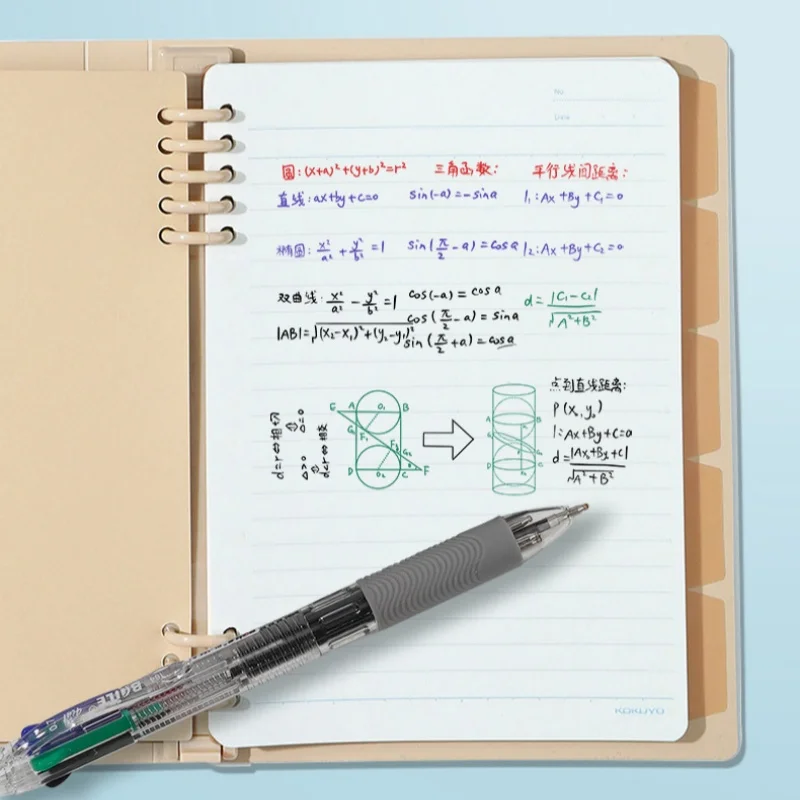 No.
Date
圆:(x+a)²+(y+b)²=r² 三角函数: 平行线间距离:
直线:ax+by+c=0 sin(-a)=-sina l₁:Ax+By+C₁=0
椭圆:x²/a²+y²/b²=1 sin(π/2-a)=cosa l₂:Ax+By+C₂=0
双曲线:x²/a²-y²/b²=1 cos(-a)=cosa d=|C₁-C₂|/√A²+B²
|AB|=√(x₂-x₁)²+(y₂-y₁)² cos(π/2-a)=sina
sin(π/2+a)=cosa
d=r⇔相切
⇕
Δ=0
Δ>0
⇕
d<r⇔相交
E A O₁ B
G F₁
F₂ G₂
D O₂ C F
A B
D C
点到直线距离:
P(x₀,y₀)
l:Ax+By+C=0
d=|Ax₀+By₀+C|/√A²+B²
BaiLE
KOKUYO